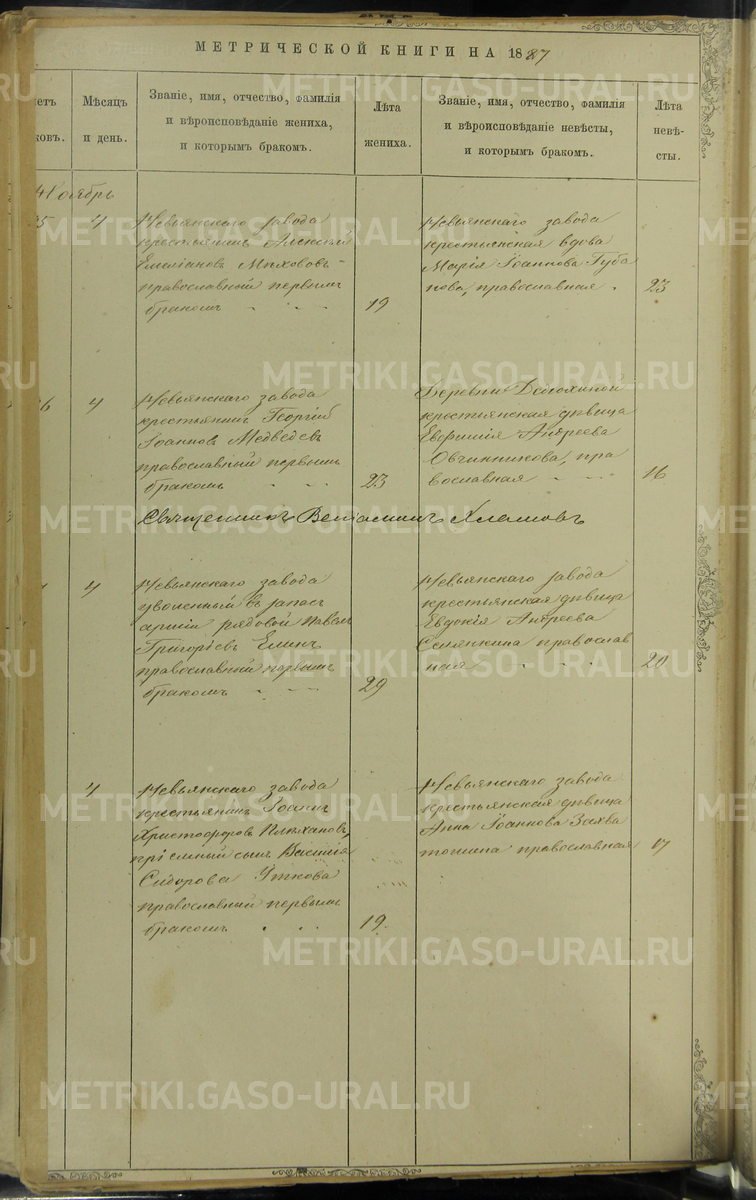 МЕТРИЧЕСКОЙ КНИГИ НА 1887
Мѣсяцъ и день.
Званіе, имя, отчество, фамилія и вѣроисповѣданіе жениха, и которымъ бракомъ.
Лѣта жениха.
Званіе, имя, отчество, фамилія и вѣроисповѣданіе невѣсты, и которымъ бракомъ.
Лѣта невѣсты.
Ноябрь
4
Невьянскаго завода
крестьянинъ Алексѣй
Емеліановъ
православный первымъ
бракомъ
19
Невьянскаго завода
крестьянская вдова
Марія Іоаннова Губа
нова, православная.
23
4
Невьянскаго завода
крестьянинъ Георгій
Іоанновъ Медведевъ
православный первымъ
бракомъ
23
Деревни
крестьянская дѣвица
Андреева
Овчинникова, пра
вославная
16
Священникъ Веніаминъ Хламовъ
4
Невьянскаго завода
уволенный въ запасъ
арміи рядовой Павелъ
Григорьевъ Елинъ
православный первымъ
бракомъ
29
Невьянскаго завода
крестьянская дѣвица
Евдокія Андреева
православ
ная
20
4
Невьянскаго завода
крестьянинъ Іоаннъ
Христофоровъ Плюхановъ
пріемный сынъ Василія
Сидорова Уткова
православный первымъ
бракомъ
19.
Невьянскаго завода
крестьянская дѣвица
Анна Іоаннова Захва
тошина православная
17
METRIKI.GASO-URAL.RU